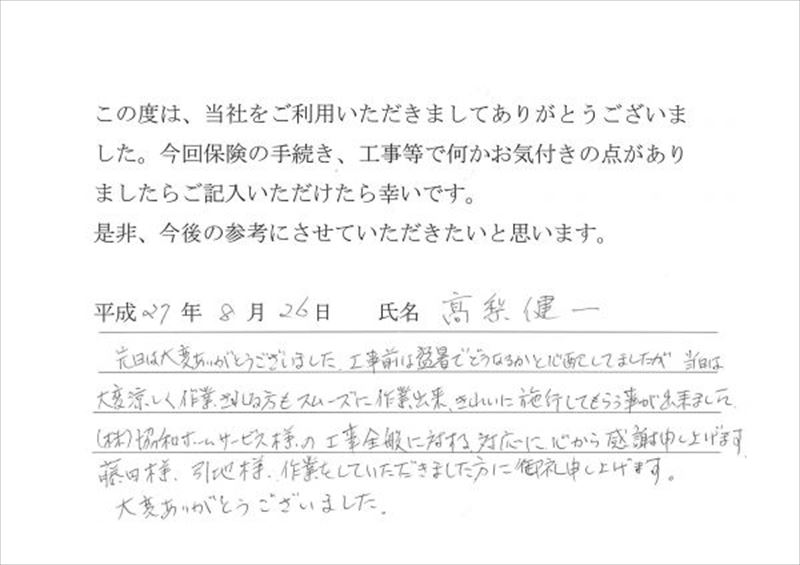 この度は、当社をご利用いただきましてありがとうございま
した。今回保険の手続き、工事等で何かお気付きの点があり
ましたらご記入いただけたら幸いです。
是非、今後の参考にさせていただきたいと思います。
平成27年8月26日 氏名 高梨健一
先日は大変ありがとうございました。工事前は猛暑でどうなるかと心配してましたが 当日は
大変涼しく作業される方もスムーズに作業出来、きれいに施行してもらう事が出来まして
(株)協和ホームサービス様の工事全般に対する対応に心から感謝申し上げます
藤田様、引地様、作業をしていただきました方に御礼申し上げます。
大変ありがとうございました。